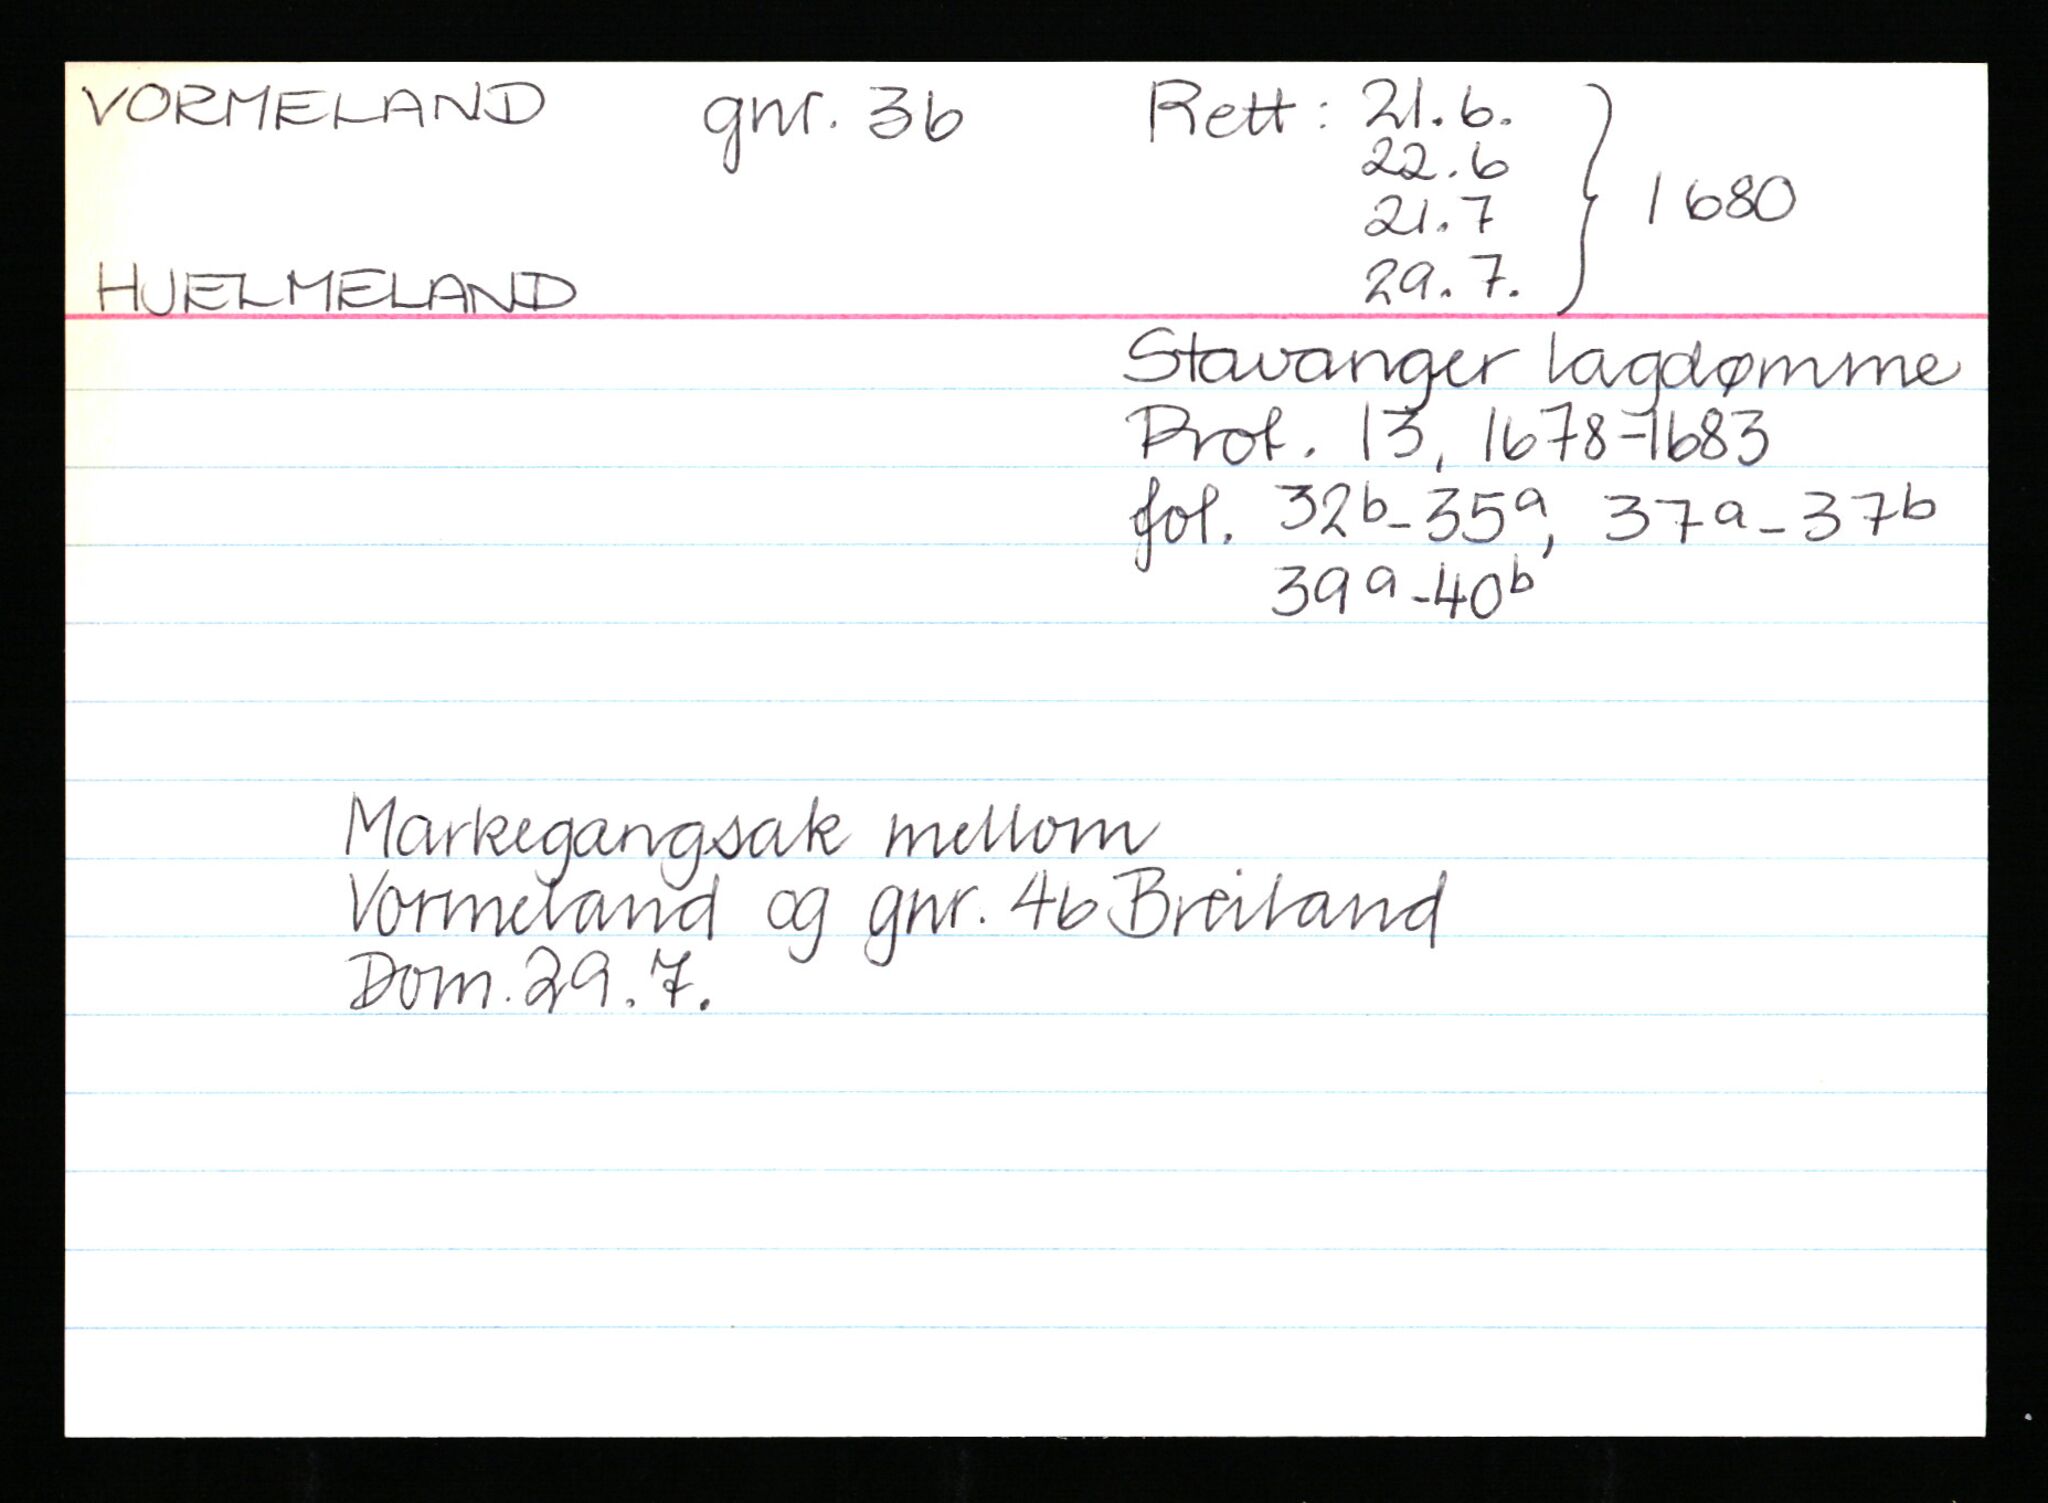 VORMELAND gnr. 36 Rett: 21.6.
22.6
21.7
29.7.
} 1680
HJELMELAND
Stavanger lagdømme
Prot. 13, 1678-1683
fol. 32b-35a, 37a-37b
39a-40b
Markegangsak mellom
Vormeland og gnr. 46 Breiland
Dom. 29.7.